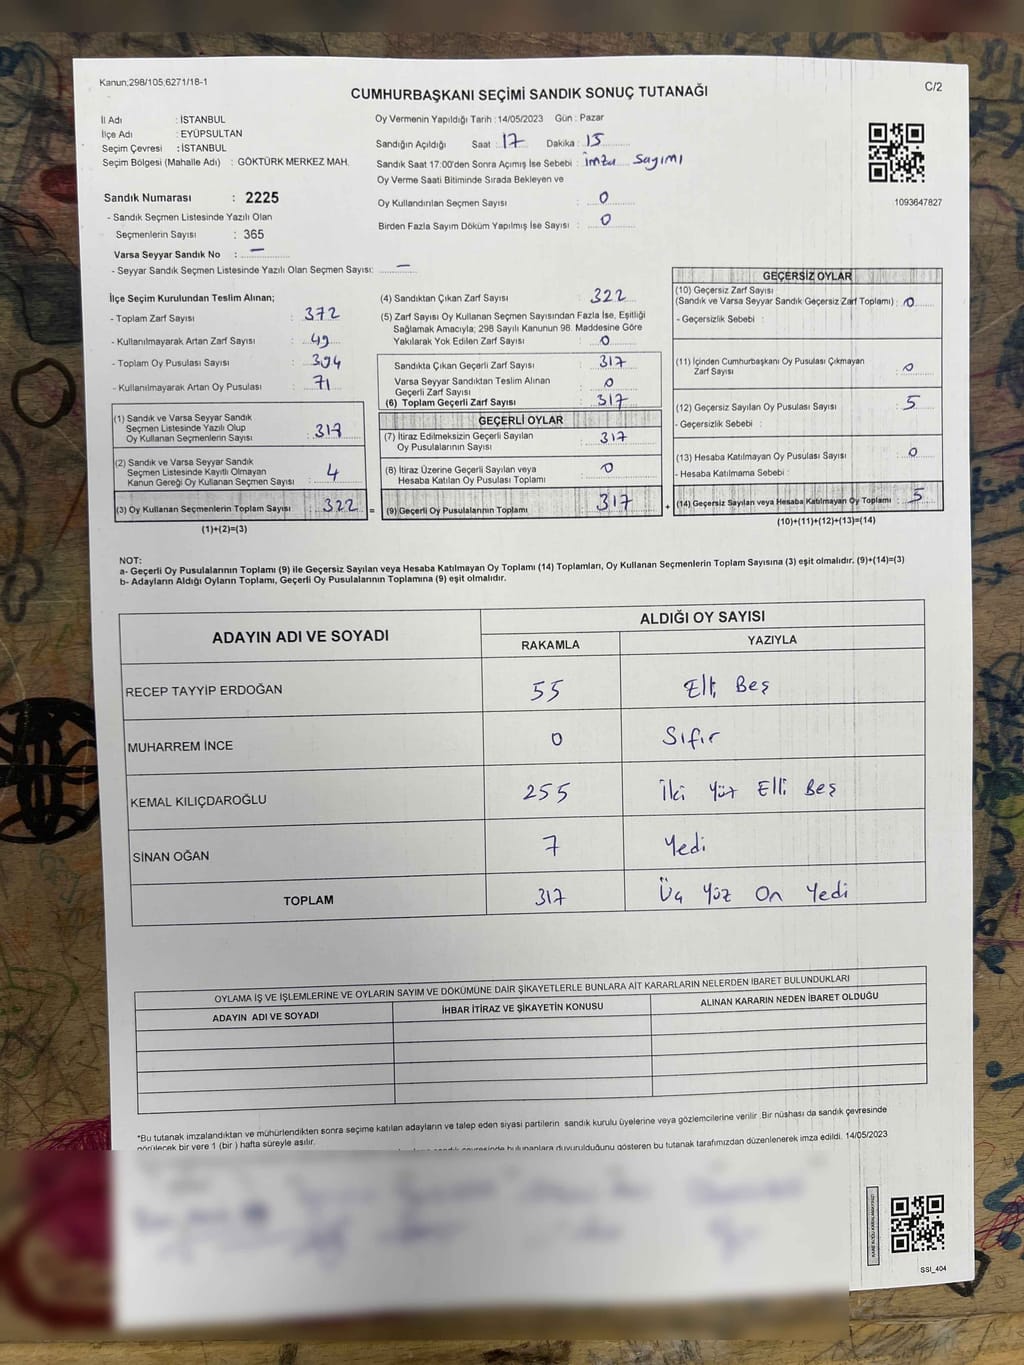 Kanun,298/105,6271/18-1
C/2
CUMHURBAŞKANI SEÇİMİ SANDIK SONUÇ TUTANAĞI
İl Adı : İSTANBUL
İlçe Adı : EYÜPSULTAN
Seçim Çevresi : İSTANBUL
Seçim Bölgesi (Mahalle Adı) : GÖKTÜRK MERKEZ MAH.
Oy Vermenin Yapıldığı Tarih : 14/05/2023 Gün : Pazar
Sandığın Açıldığı Saat : 17 Dakika : 15
Sandık Saat 17:00'den Sonra Açımış İse Sebebi : İmza Sayımı
Oy Verme Saati Bitiminde Sırada Bekleyen ve
Oy Kullandırılan Seçmen Sayısı : 0
Birden Fazla Sayım Döküm Yapılmış İse Sayısı : 0
1093647827
Sandık Numarası : 2225
- Sandık Seçmen Listesinde Yazılı Olan
Seçmenlerin Sayısı : 365
Varsa Seyyar Sandık No : —
- Seyyar Sandık Seçmen Listesinde Yazılı Olan Seçmen Sayısı: —
İlçe Seçim Kurulundan Teslim Alınan;
- Toplam Zarf Sayısı : 372
- Kullanılmayarak Artan Zarf Sayısı : 49
- Toplam Oy Pusulası Sayısı :
- Kullanılmayarak Artan Oy Pusulası : 71
(1) Sandık ve Varsa Seyyar Sandık
Seçmen Listesinde Yazılı Olup
Oy Kullanan Seçmenlerin Sayısı :
(2) Sandık ve Varsa Seyyar Sandık
Seçmen Listesinde Kayıtlı Olmayan
Kanun Gereği Oy Kullanan Seçmen Sayısı : 4
(3) Oy Kullanan Seçmenlerin Toplam Sayısı : 322
(1)+(2)=(3)
(4) Sandıktan Çıkan Zarf Sayısı : 322
(5) Zarf Sayısı Oy Kullanan Seçmen Sayısından Fazla İse, Eşitliği
Sağlamak Amacıyla; 298 Sayılı Kanunun 98. Maddesine Göre
Yakılarak Yok Edilen Zarf Sayısı : 0
Sandıkta Çıkan Geçerli Zarf Sayısı : 317
Varsa Seyyar Sandıktan Teslim Alınan
Geçerli Zarf Sayısı : 0
(6) Toplam Geçerli Zarf Sayısı : 317
GEÇERLİ OYLAR
(7) İtiraz Edilmeksizin Geçerli Sayılan
Oy Pusulalarının Sayısı : 317
(8) İtiraz Üzerine Geçerli Sayılan veya
Hesaba Katılan Oy Pusulası Toplamı : 0
= (9) Geçerli Oy Pusulalarının Toplamı : 317
GEÇERSİZ OYLAR
(10) Geçersiz Zarf Sayısı
(Sandık ve Varsa Seyyar Sandık Geçersiz Zarf Toplamı) : 0
- Geçersizlik Sebebi :
(11) İçinden Cumhurbaşkanı Oy Pusulası Çıkmayan
Zarf Sayısı : 0
(12) Geçersiz Sayılan Oy Pusulası Sayısı : 5
- Geçersizlik Sebebi :
(13) Hesaba Katılmayan Oy Pusulası Sayısı : 0
- Hesaba Katılmama Sebebi :
+ (14) Geçersiz Sayılan veya Hesaba Katılmayan Oy Toplamı : 5
(10)+(11)+(12)+(13)=(14)
NOT:
a- Geçerli Oy Pusulalarının Toplamı (9) ile Geçersiz Sayılan veya Hesaba Katılmayan Oy Toplamı (14) Toplamları, Oy Kullanan Seçmenlerin Toplam Sayısına (3) eşit olmalıdır. (9)+(14)=(3)
b- Adayların Aldığı Oyların Toplamı, Geçerli Oy Pusulalarının Toplamına (9) eşit olmalıdır.
ADAYIN ADI VE SOYADI ALDIĞI OY SAYISI
RAKAMLA YAZIYLA
RECEP TAYYİP ERDOĞAN 55 Elli Beş
MUHARREM İNCE 0 Sıfır
KEMAL KILIÇDAROĞLU 255 İki Yüz Elli Beş
SİNAN OĞAN 7 Yedi
TOPLAM 317 Üç Yüz On Yedi
OYLAMA İŞ VE İŞLEMLERİNE VE OYLARIN SAYIM VE DÖKÜMÜNE DAİR ŞİKAYETLERLE BUNLARA AİT KARARLARIN NELERDEN İBARET BULUNDUKLARI
ADAYIN ADI VE SOYADI İHBAR İTİRAZ VE ŞİKAYETİN KONUSU ALINAN KARARIN NEDEN İBARET OLDUĞU
*Bu tutanak imzalandıktan ve mühürlendikten sonra seçime katılan adayların ve talep eden siyasi partilerin sandık kurulu üyelerine veya gözlemcilerine verilir. Bir nüshası da sandık çevresinde
görülecek bir yere 1 (bir ) hafta süreyle asılır.
bulunanlara duyurulduğunu gösteren bu tutanak tarafımızdan düzenlenerek imza edildi. 14/05/2023
SSI_404